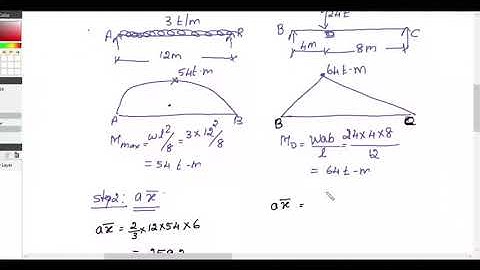 3 t/m
A B
12m
54t-m
A B
Mmax = wl²/8 = 3×12²/8
= 54 t-m
Step2: ax̄
ax̄ = 2/3 × 12 × 54 × 6
24t
B D C
4m 8m
64t-m
B
M_D = Wab/l = 24×4×8/12
= 64t-m
ax̄ =